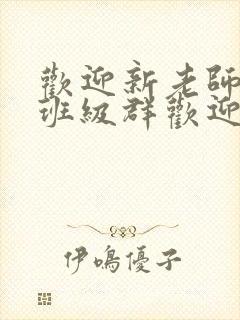 歡迎新老師
班級群歡迎
伊鳴優子